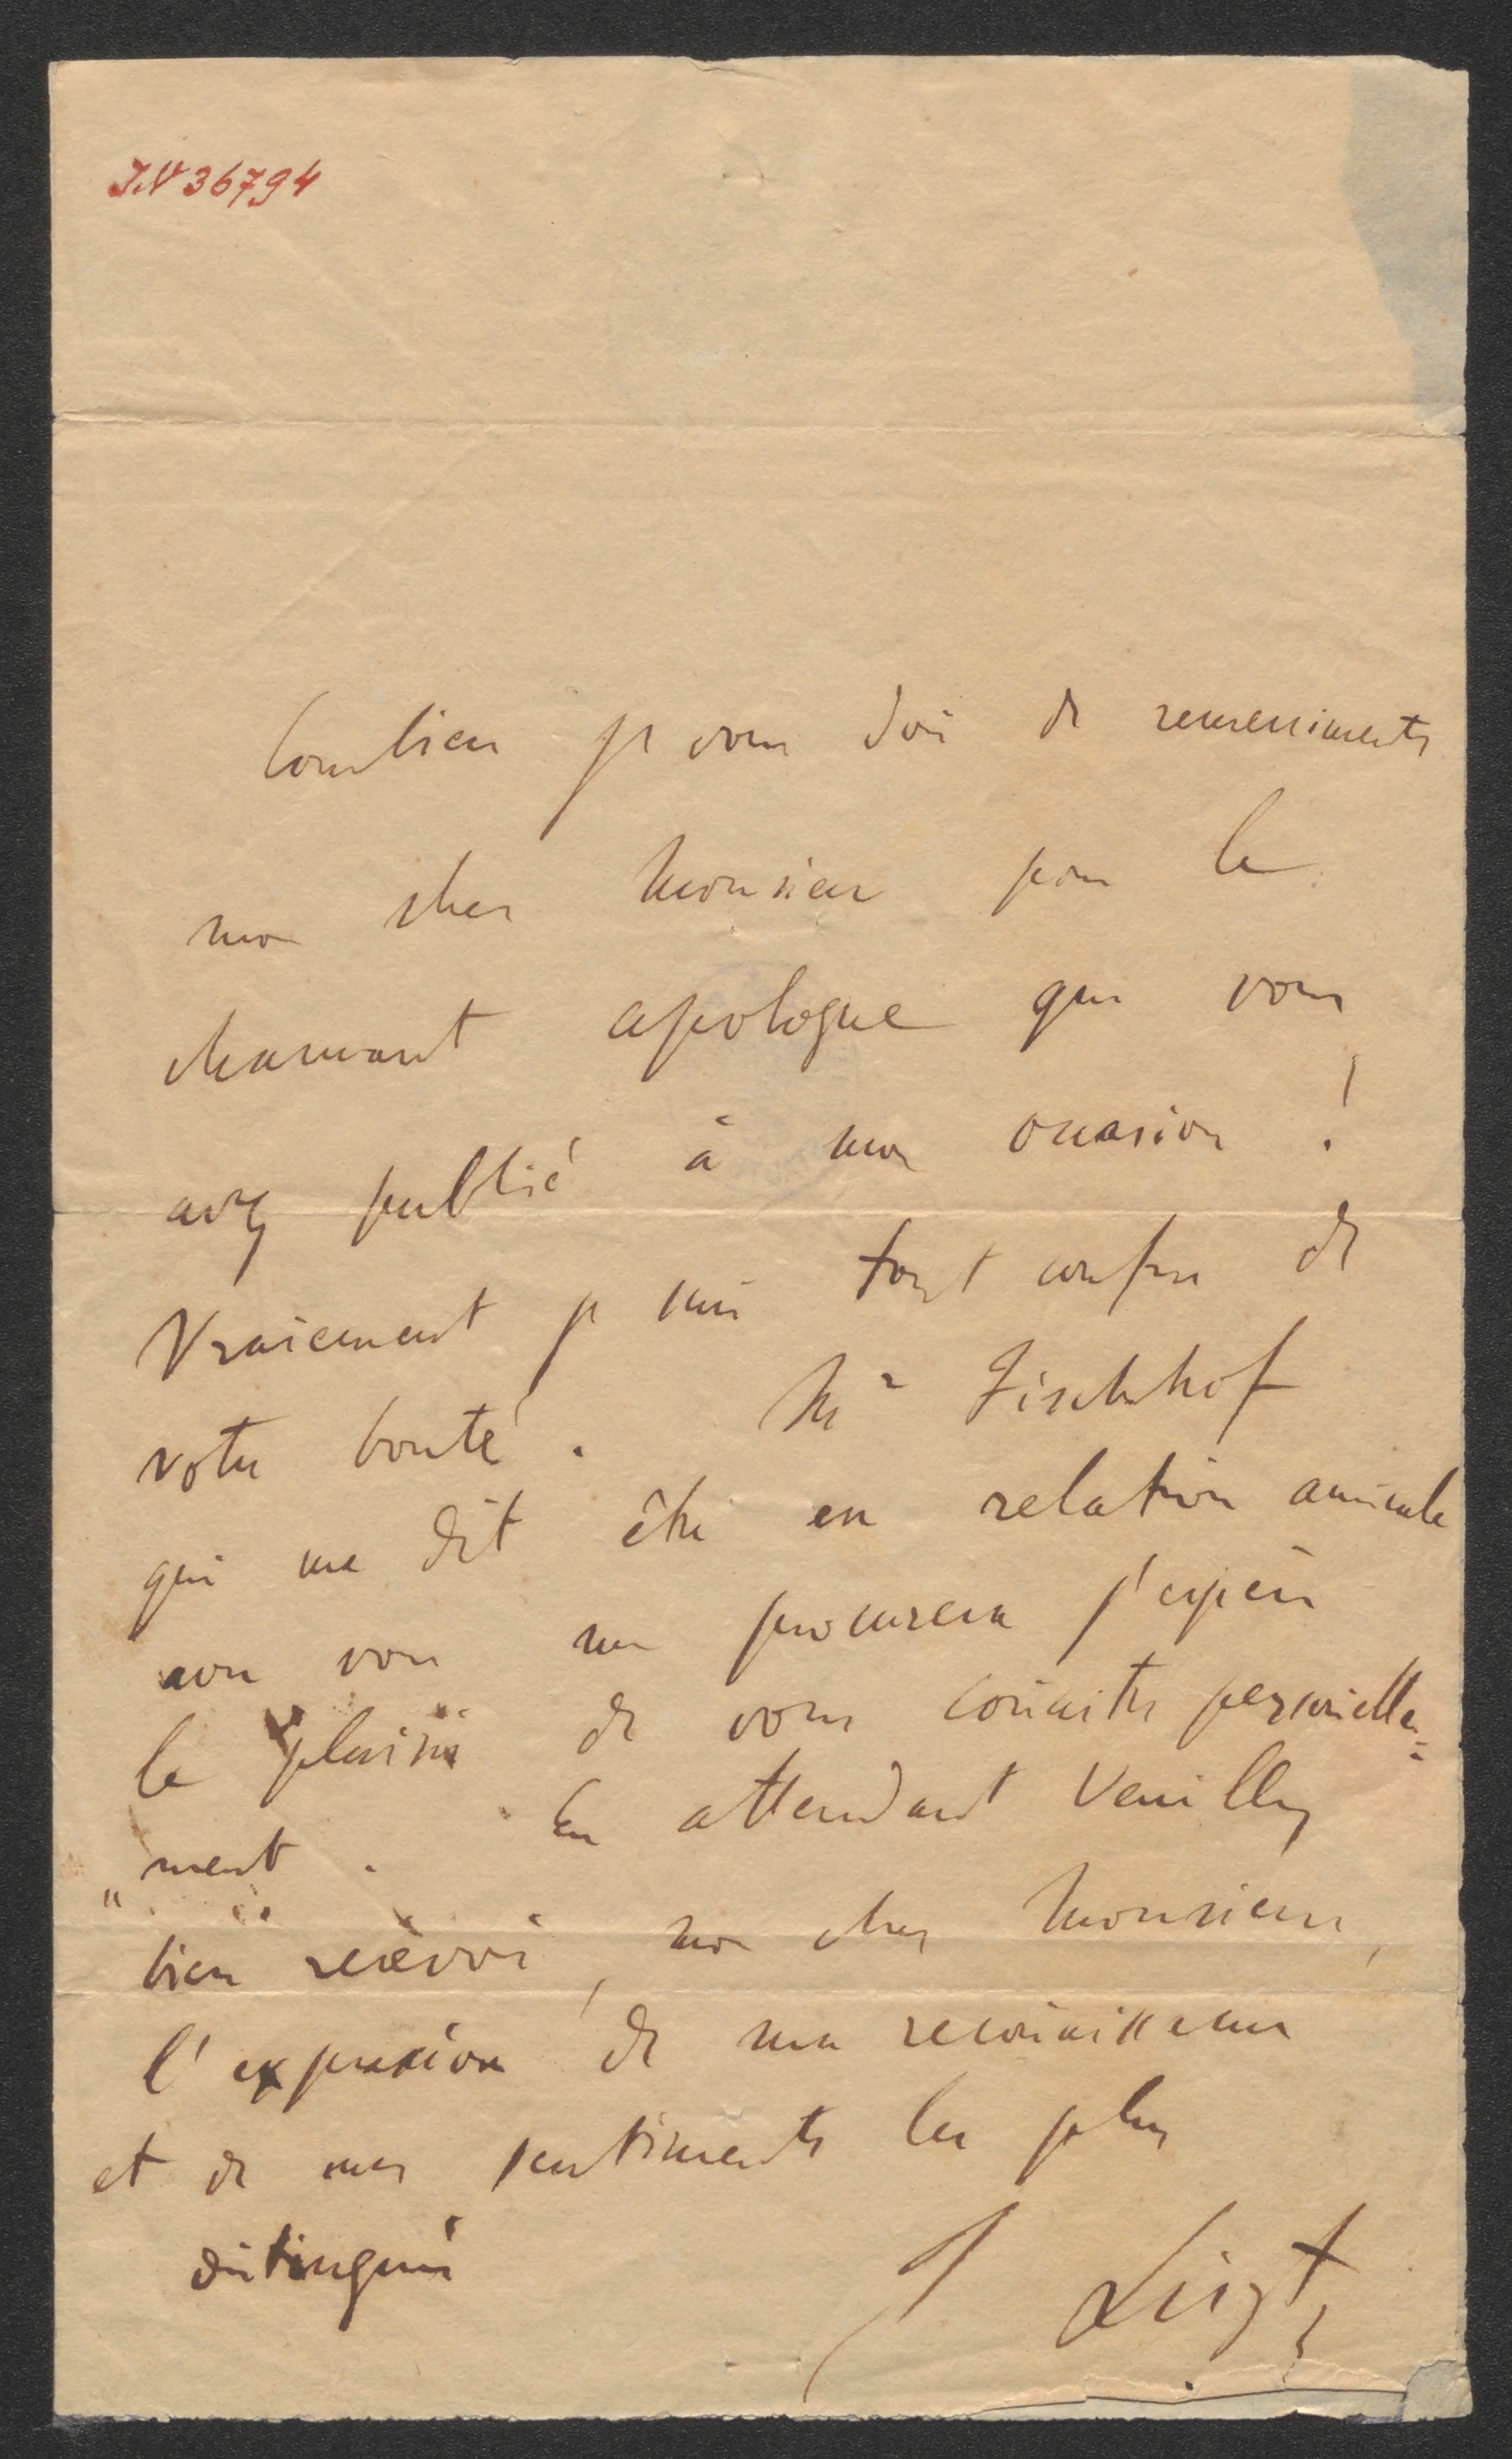 I.N 36794
Combien je vous dois de remerciments
mon cher Monsieur pour le
charmant apologue que vous
avez publié à mon occasion !
Vraiement je suis tout confus de
votre bonté. Mr Fischhof
qui me dit être en relation amicale
avec vous me procurera j'espère
le plaisir de vous connaitre personelle=
"ment. En attendant Veuillez
bien recevoir, mon cher Monsieur,
l'expression de ma reconnaissance
et de mes sentiments les plus
distingués
F Liszt